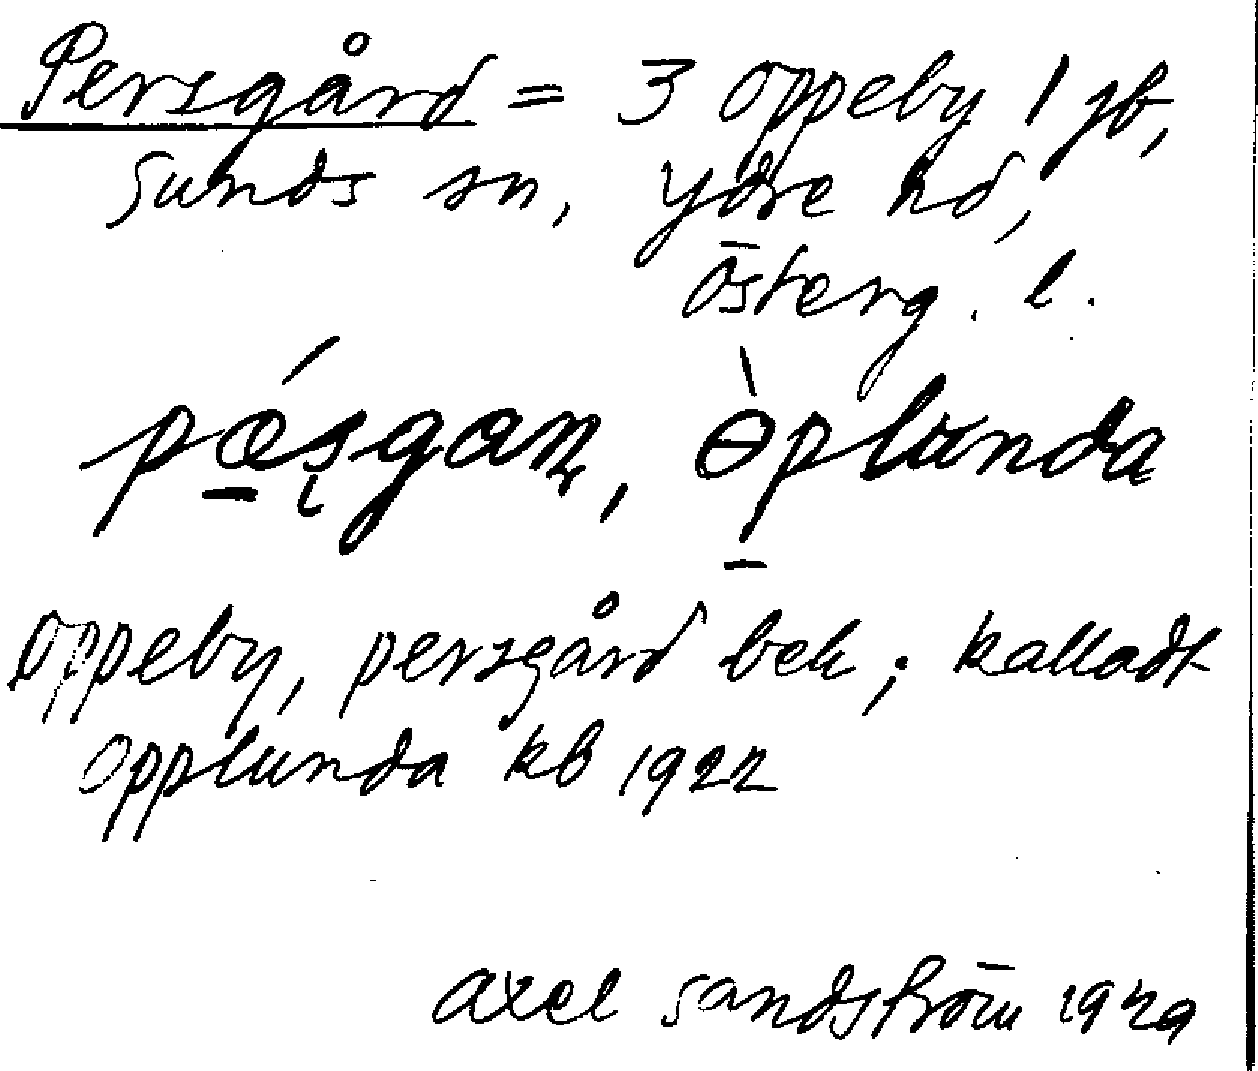 Persgård = 3 Oppeby 1 jb,
Sunds sn, Ydre hd,
Österg. l.
oppeby, persgård bek; kalladt
opplunda kb 1922
Axel Sandström 1929